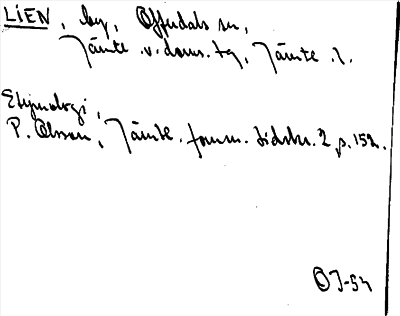 LIEN, by, Offerdals sn,
Jämtl. v. doms. tg, Jämtl. l.
Etymologi,
P. Olsson, Jämtl. fornm. tidskr. 2 p. 152.
OJ-54